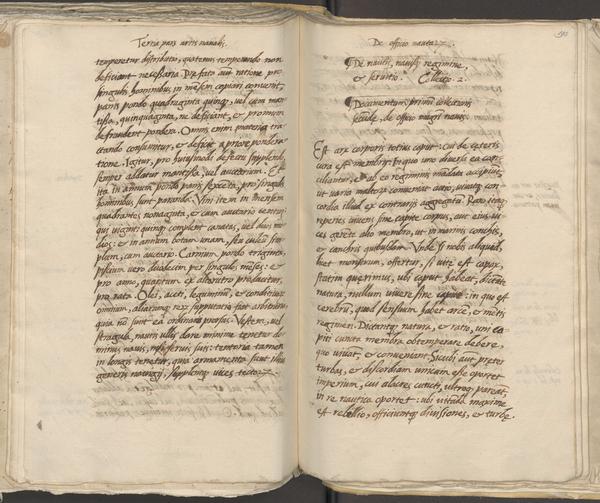 Tertia pars artis navalis.
temperetur distributio, quatenus temperando non
deficiant necessaria. Pręfato aut ratione pro
singulis hominibus, in mesem capiari convenit,
panis pondo quadraginta quinq, vel cum man
tissa, quinquaginta, ne deficiant, et promum
defraudent pondera. Omnis enim materia tra
ctando consumitur, et deficit a priore pondera
tione. Igitur, pro huiusmodi defectu supplendo,
semper addatur mantissa, vel auctorium. Est
ita in annum pondo panis sexcenta pro singulis
hominibus sunt paranda. Vini item in mensem
quadrantes nonaginta, et cum auctario centum
qui viginti quinq complent canatas, vel duos mo
dios: et in annum botam unam, seu culeum sim
plum, cum auctario. Carnium pondo triginta,
piscium vero duodecim per singulos menses: et
pro anno, quantum ex altorutro producitur,
pro rata. Olei, aceti, leguminum, et condituræ
omnium, aliarumq rerum supputatio fiat arbitraria,
quia non sunt ea ordinaria prorsus. Vestem, vel
stragula, nautis ullis dare minime tenetur do
minus navis, nisi servis suis: tentoria tamen
in longis tenetur, quia armamenta sunt illius
generis navigij, supplentq vices tectorum.
De officio nautarum.
¶De nautis, navisq regimine,
et servitio. Collectio. 2.
¶Documentum primum collectionis
secundę, de officio magistri navis.
Est arx corporis totius caput: cui de cęteris
cura est membris: in quo uno diversi ea con-
ciliantur, et ab eo regiminis mandata accipiunt,
ut varia inter se conveniant ossa, vivatq con
cordia illud ex contrarijs aggregatum. Raro, tamq
reperies vivens sine capite corpus, aut eius vi-
ces gerere alio membro, ut in marinis conchis,
et canchris quibusdam. Unde si nobis aliquod,
licet monstrum, offertur, si vivere est capax,
statim querimus, ubi caput habeat, dictante
natura, nullum vivere sine capite: in quo est
cerebrum, quod sensuum habet arcem, et men
regimen. Dictantq natura, et ratio, uni ca-
piti cuncta membra obtemperare debere,
quo vivat, et conveniant. Sicubi aut preter
turbas, et discordiam unicum esse oportet
imperium, cui alacres cuncti, ultroq pareant,
in re nautica oportet: ubi vitanda maxime
est rebellio, officiumq divisiones, et turbę.